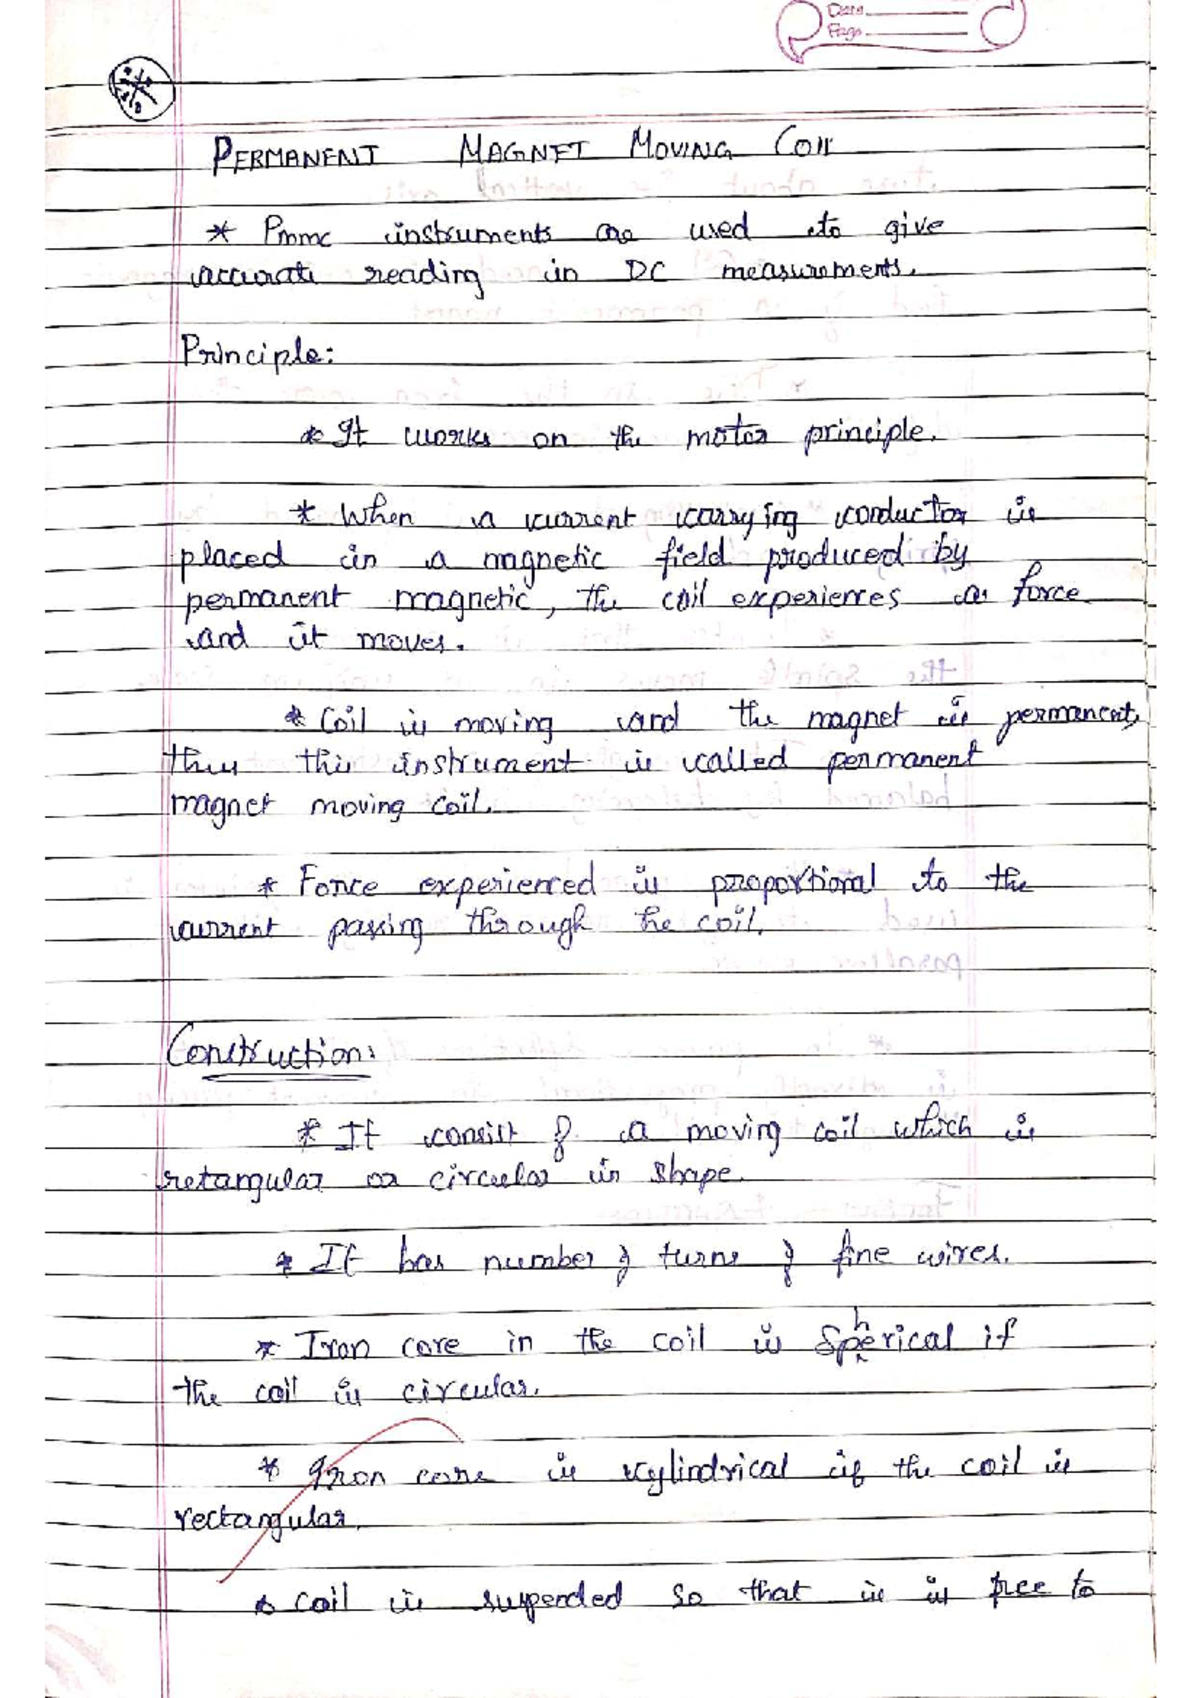 Date
Page
PERMANENT MAGNET MOVING COIL
* Pmmc instruments are used to give
accurate reading in DC measurements.
Principle:
* It works on the motor principle.
* When a current carrying conductor is
placed in a magnetic field produced by
permanent magnetic, the coil experiences a force
and it moves.
* Coil is moving and the magnet is permanent,
thus this instrument is called permanent
magnet moving coil.
* Force experienced is proportional to the
current passing through the coil.
Construction:
* It consist of a moving coil which is
retangular or circular in shape.
* It has number of turns of fine wires.
* Iron core in the coil is Spherical if
the coil is circular.
* Iron core is cylindrical if the coil is
rectangular.
* Coil is suspended so that is is free to